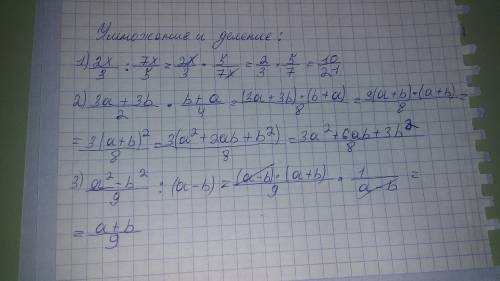 Умножение и деление:
1) 2x/3 : 7x/5 = 2x/3 · 5/7x = 2/3 · 5/7 = 10/21
2) 3a+3b/2 · b+a/4 = (3a+3b)·(b+a)/8 = 3(a+b)·(a+b)/8 =
= 3(a+b)²/8 = 3(a²+2ab+b²)/8 = 3a²+6ab+3b²/8
3) a²-b²/9 : (a-b) = (a-b)·(a+b)/9 · 1/a-b =
= a+b/9